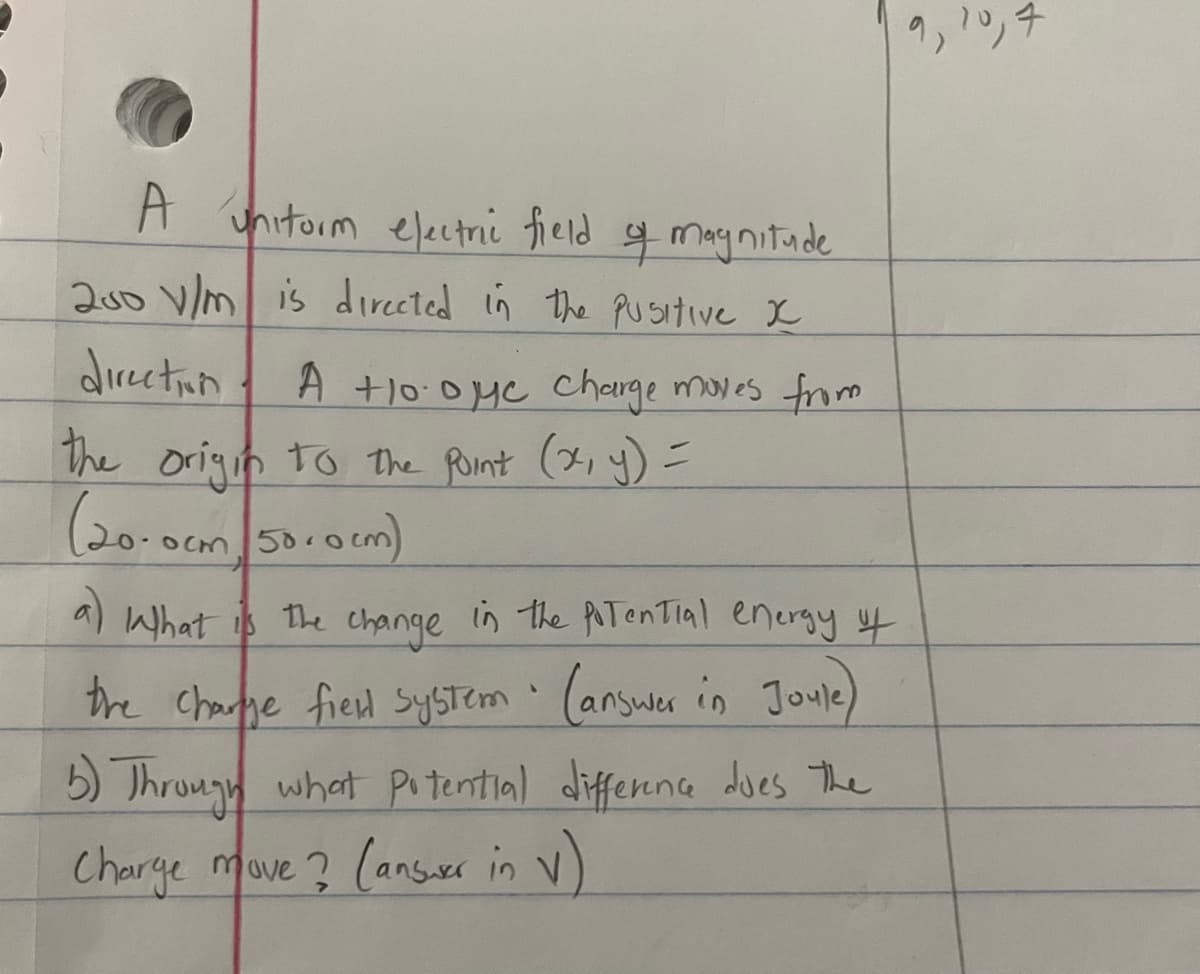 9, 10, 7
A uniform electric field of magnitude
200 V/m is directed in the positive x
direction. A +10.0 μc charge moves from
the origin to the point (x, y) =
(20.0cm, 50.0cm)
a) What is the change in the potential energy of
the charge field system. (answer in Joule)
b) Through what potential difference does the
charge move? (answer in V)